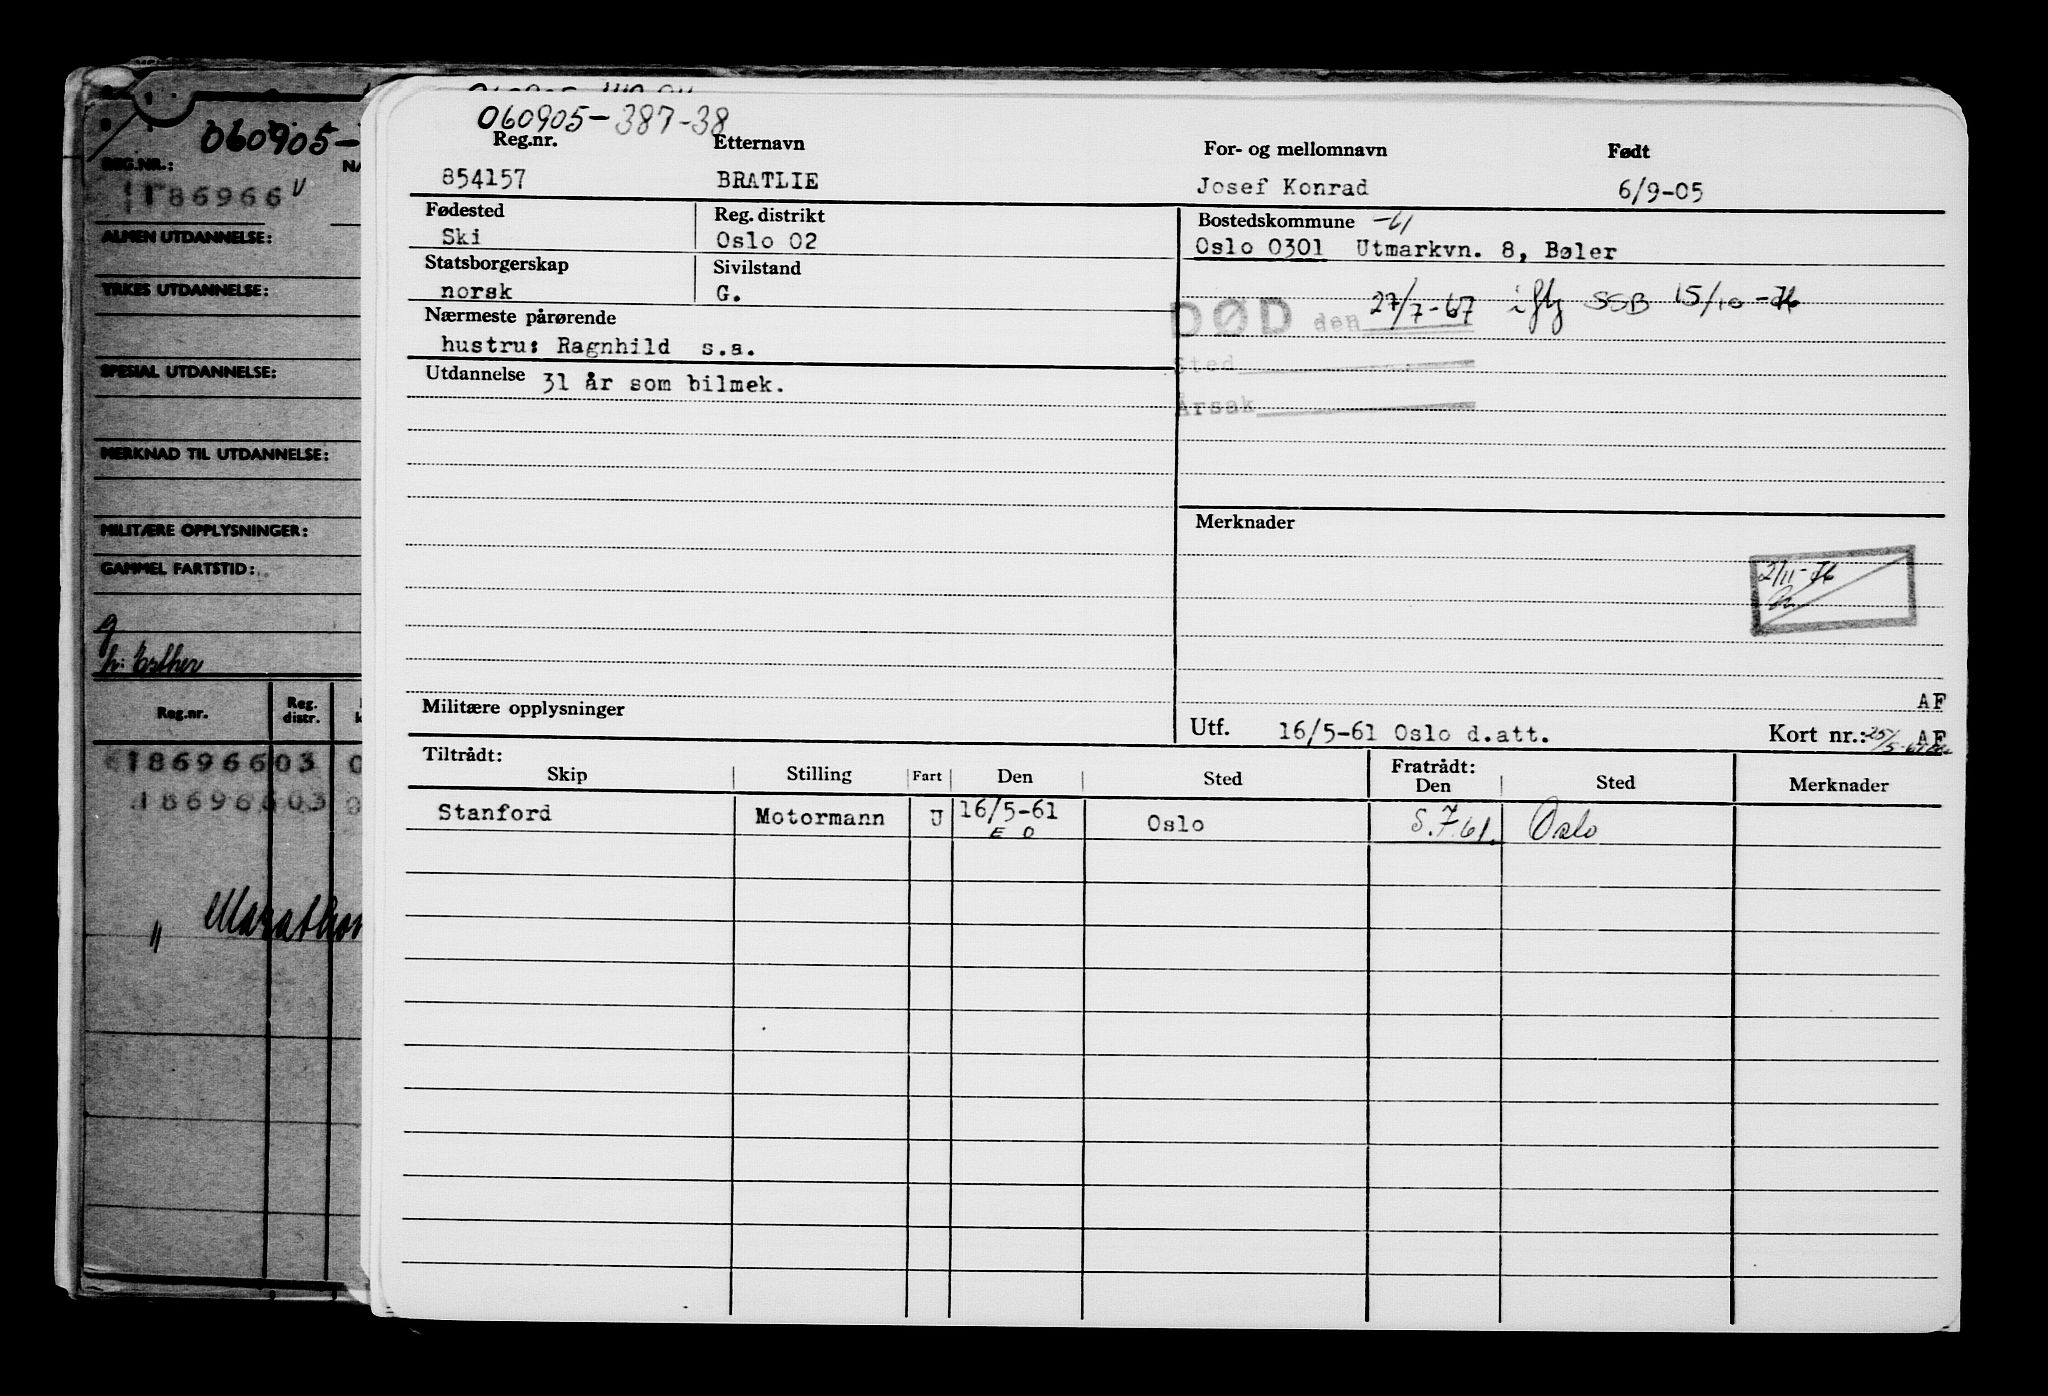 060905-
REG.NR.:
186966
ALMEN UTDANNELSE:
YRKES UTDANNELSE:
SPESIAL UTDANNELSE:
MERKNAD TIL UTDANNELSE:
MILITÆRE OPPLYSNINGER:
GAMMEL FARTSTID:
g
h: Esther
Reg.nr. Reg. distr.
186966 03
186966 03
" Marathon
060905-387-38
Reg.nr. Etternavn For- og mellomnavn Født
854157 BRATLIE Josef Konrad 6/9-05
Fødested Reg. distrikt Bostedskommune -61
Ski Oslo 02 Oslo 0301 Utmarkvn. 8, Bøler
Statsborgerskap Sivilstand
norsk G.
DØD den 27/7-67 iflg SSB 15/10-76
Nærmeste pårørende
hustru: Ragnhild s.a.
Sted
Utdannelse 31 år som bilmek.
Årsak
Merknader
2/11-76
AF
Militære opplysninger
Utf. 16/5-61 Oslo d.att. Kort nr.: AF
Tiltrådt: Fratrådt:
Skip Stilling Fart Den Sted Den Sted Merknader
Stanford Motormann U 16/5-61 Oslo 5.7.61. Oslo
E O